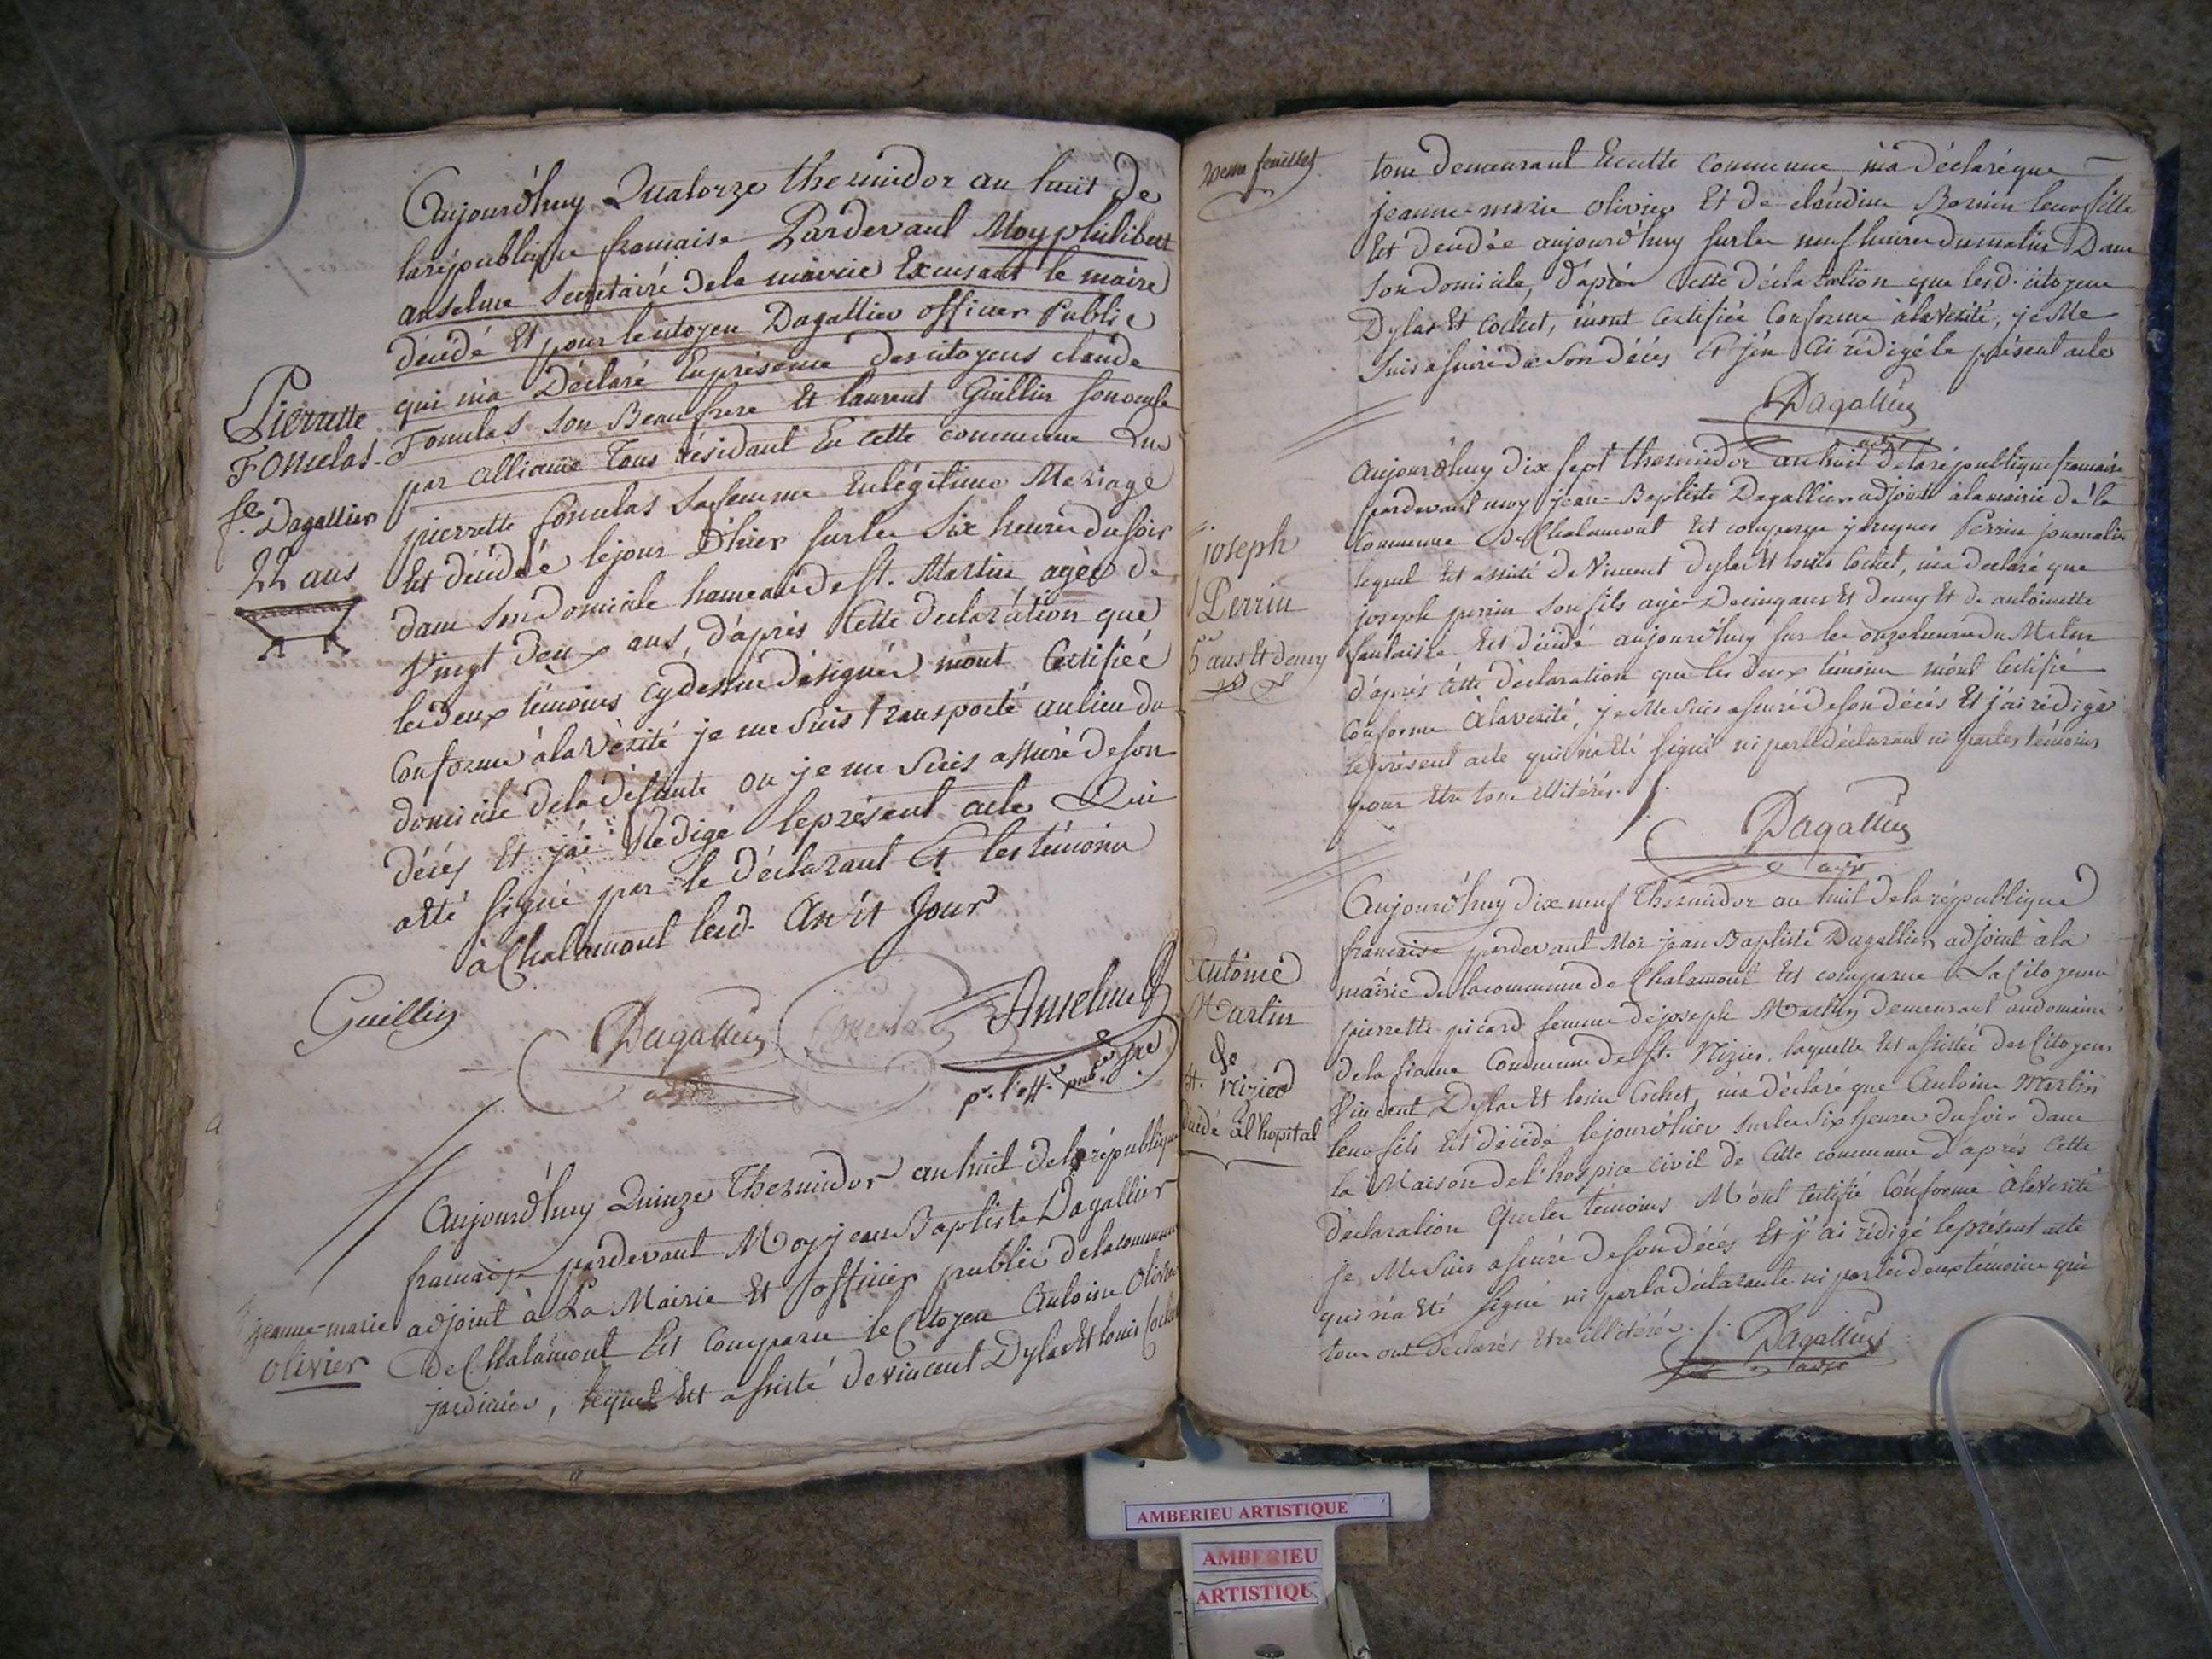 Aujourd'huy Quatorze thermidor an huit de
la république francaise Pardevant Moy philibert
anselme secretaire de la mairie Excusant le maire
décédé Et pour le citoyen Dagallier officier Public
qui m'a Déclaré En présence des citoyens claude
Fomelas son Beau frere Et laurent Guillin son oncle
par alliance Tous résidant En cette commune Que
pierrette fomelas sa femme En légitime Mariage
Est décédée le jour D'hier sur les Six heures du soir
dans son domicile hameau de st. Martin agée de
Vingt deux ans, d'après Cette declaration que
les deux témoins cy dessus désignés m'ont Certifiée
Conforme à la Vérité je me suis transporté au lieu du
domicile de la défunte ou je me suis assuré de son
décès Et j'ai Redigé le présent acte Qui
a été signé par le déclarant Et les témoins
à Chalamont lesd. An et Jour
Pierrette
Fomelas
fe. Dagallier
22 ans
Guillin
Dagallier
Anselme
adjt
pr. l'off. pub. sre.
Aujourd'huy Quinze Thermidor an huit de la république
francaise pardevant Moy jean Baptiste Dagallier
adjoint à La Mairie Et officier public de la commune
de Chalamont Est comparu le Citoyen Antoine Olivier
jardinier, lequel Est assisté de vincent Dylas Et louis Cochet
jeanne-marie
olivier
20eme feuillet
tous demeurant En cette commune m'a déclaré que
jeanne-marie olivier Et de claudine Bernin leur fille
Est décédée aujourd'huy sur les neuf heures du matin Dans
son domicile, d'après Cette déclaration que lesd. citoyens
Dylas Et Cochet, m'ont Certifiée Conforme à la Vérité, je Me
suis assuré de Son décès Et j'en ai rédigé le présent acte
Dagallier
adjt
Aujourd'huy dix sept thermidor an huit de la république francaise
pardevant moy jean-Baptiste Dagallier adjoint à la mairie de la
Commune de Chalamont Est comparu jacques Perrin journalier
lequel Est assisté de Vincent Dylas Et louis Cochet, m'a declaré que
joseph perrin son fils agé De cinq ans Et demy Et de antoinette
fantaisie Est décédé aujourd'huy sur les onze heures du Matin
d'après cette déclaration que les deux témoins m'ont Certifié
Conforme à la vérité, je Me suis assuré de son décès Et j'ai rédigé
le présent acte qui n'a Eté signé ni par le déclarant ni par les témoins
pour Etre tous illitérés.
joseph
Perrin
5 ans Et demy
Dagallier
adjt
Aujourd'huy dix neuf Thermidor an huit de la république
francaise pardevant Moi jean Baptiste Dagallier adjoint à la
mairie de la commune de Chalamont Est comparue La Citoyenne
pierrette picard femme de joseph Martin demeurant au domaine
de la frame Commune de st. Nizier. laquelle Est assistée des Citoyens
Vincent Dylas Et louis Cochet, m'a déclaré que Antoine Martin
leur fils Est décédé le jour d'hier sur les six heures du soir dans
la Maison de l'hospice civil de Cette commune d'après Cette
déclaration Que les témoins M'ont Certifié Conforme à la Vérité
Je Me suis assuré de son décès Et j'ai rédigé le présent acte
qui n'a Eté signé ni par la déclarante ni par les deux témoins qui
tous ont déclarés Etre illitérés.
Antoine
Martin
de
st. nizier
décédé à l'hopital
Dagallier
adjt
AMBERIEU ARTISTIQUE
AMBERIEU
ARTISTIQU